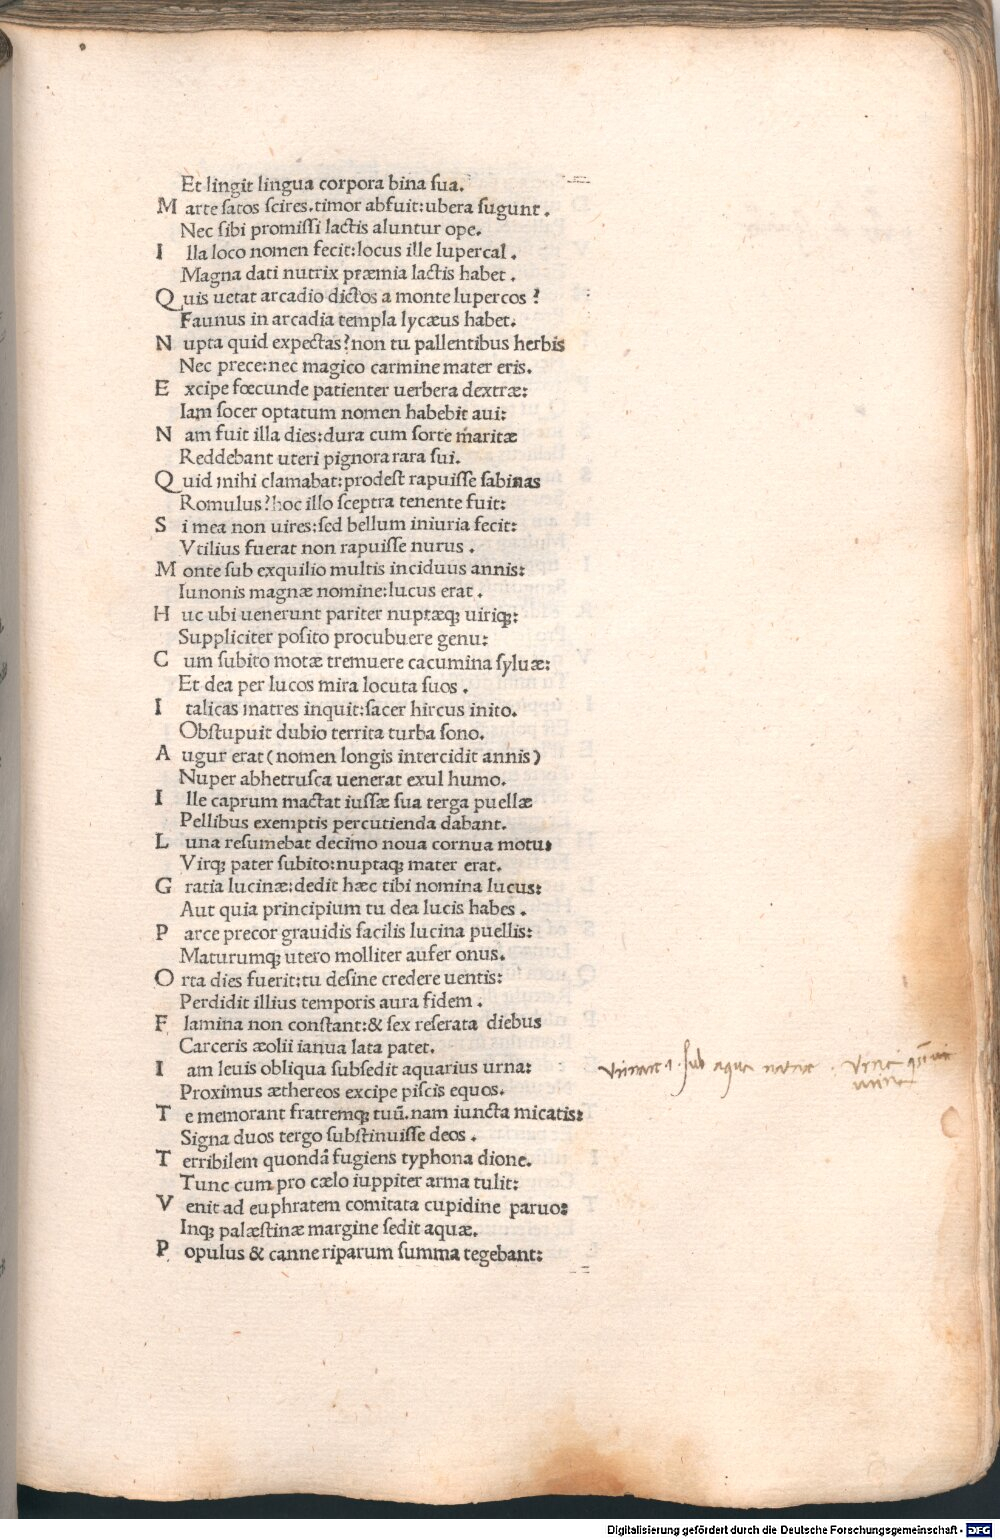 Et lingit lingua corpora bina sua.
M arte satos scires. timor abfuit: ubera sugunt.
Nec sibi promissi lactis aluntur ope.
I lla loco nomen fecit: locus ille lupercal.
Magna dati nutrix præmia lactis habet.
Q uis uetat arcadio dictos a monte lupercos?
Faunus in arcadia templa lycæus habet.
N upta quid expectas? non tu pallentibus herbis
Nec prece: nec magico carmine mater eris.
E xcipe fœcunde patienter uerbera dextræ:
Iam socer optatum nomen habebit aui:
N am fuit illa dies: dura cum sorte maritæ
Reddebant uteri pignora rara sui.
Q uid mihi clamabat: prodest rapuisse sabinas
Romulus? hoc illo sceptra tenente fuit:
S i mea non uires: sed bellum iniuria fecit:
Vtilius fuerat non rapuisse nurus.
M onte sub exquilio multis inciduus annis:
Iunonis magnæ nomine: lucus erat.
H uc ubi uenerunt pariter nuptæq; uiriq;:
Suppliciter posito procubuere genu:
C um subito motæ tremuere cacumina syluæ:
Et dea per lucos mira locuta suos.
I talicas matres inquit: sacer hircus inito.
Obstupuit dubio territa turba sono.
A ugur erat (nomen longis intercidit annis)
Nuper abhetrusca uenerat exul humo.
I lle caprum mactat iussæ sua terga puellæ
Pellibus exemptis percutienda dabant.
L una resumebat decimo noua cornua motu:
Virq; pater subito: nuptaq; mater erat.
G ratia lucinæ: dedit hæc tibi nomina lucus:
Aut quia principium tu dea lucis habes.
P arce precor grauidis facilis lucina puellis:
Maturumq; utero molliter aufer onus.
O rta dies fuerit: tu desine credere uentis:
Perdidit illius temporis aura fidem.
F lamina non constant: & sex reserata diebus
Carceris æolii ianua lata patet.
I am leuis obliqua subsedit aquarius urna:
Proximus æthereos excipe piscis equos.
T e memorant fratremq; tuū. nam iuncta micatis:
Signa duos tergo substinuisse deos.
T erribilem quondā fugiens typhona dione.
Tunc cum pro cælo iuppiter arma tulit:
V enit ad euphratem comitata cupidine paruo:
Inq; palæstinæ margine sedit aquæ.
P opulus & canne riparum summa tegebant:
sub aqua
Digitalisierung gefördert durch die Deutsche Forschungsgemeinschaft - DFG